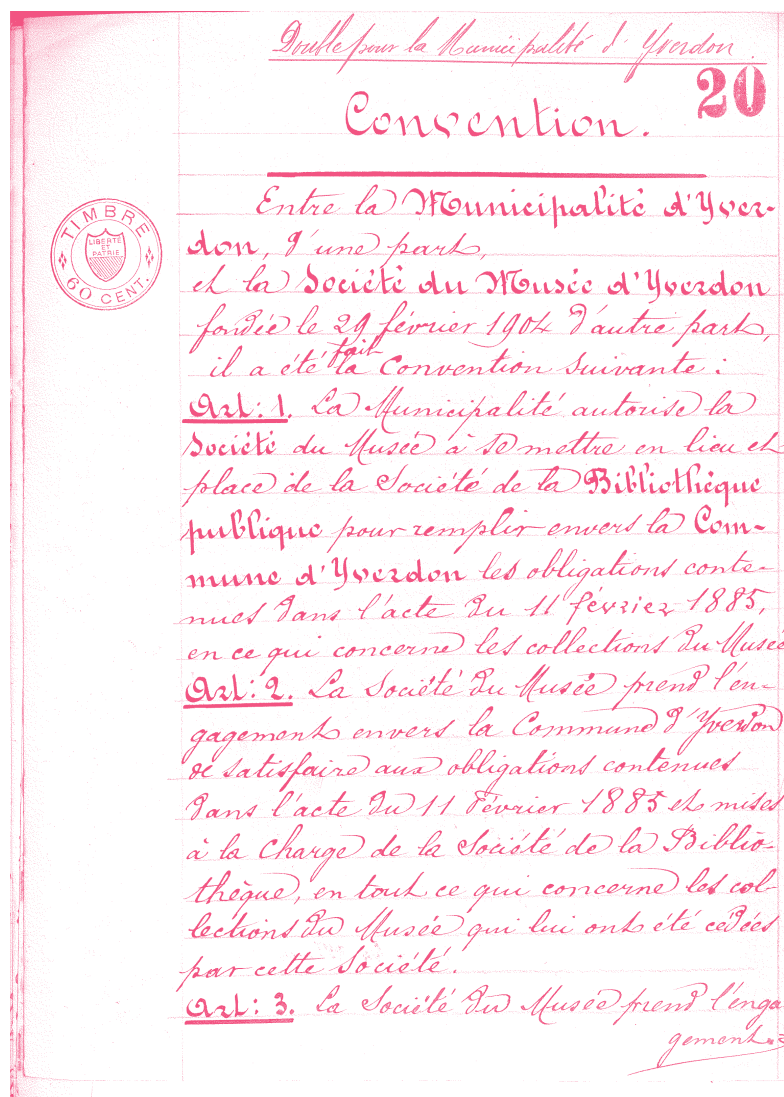 Double pour la Municipalité d'Yverdon.
20
Convention.
TIMBRE
LIBERTÉ
ET
PATRIE
60 CENT.
Entre la Municipalité d'Yver-
don, d'une part,
et la Société du Musée d'Yverdon
fondée le 29 février 1904 d'autre part,
il a été fait la Convention suivante :
Art: 1. La Municipalité autorise la
Société du Musée à se mettre en lieu et
place de la Société de la Bibliothèque
publique pour remplir envers la Com-
mune d'Yverdon les obligations conte-
nues dans l'acte du 11 février 1885,
en ce qui concerne les collections du Musée
Art: 2. La Société du Musée prend l'en-
gagement envers la Commune d'Yverdon
de satisfaire aux obligations contenues
dans l'acte du 11 Février 1885 et mises
à la charge de la Société de la Biblio-
thèque, en tout ce qui concerne les col-
lections du Musée qui lui ont été cédées
par cette Société.
Art: 3. La Société du Musée prend l'enga
gement